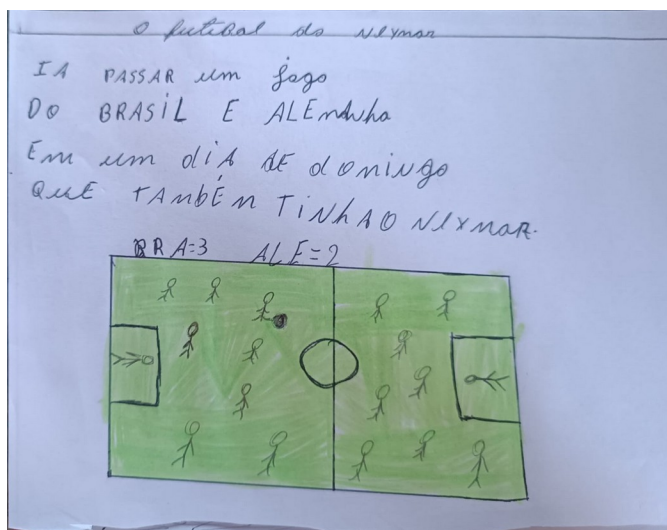 O futibol do Neymar
IA PASSAR um jogo
DO BRASIL E ALEmanha
Em um diA DE domingo
QUE TAmbÉm TiNHA O NEYmAR.
BRA=3 ALE=2